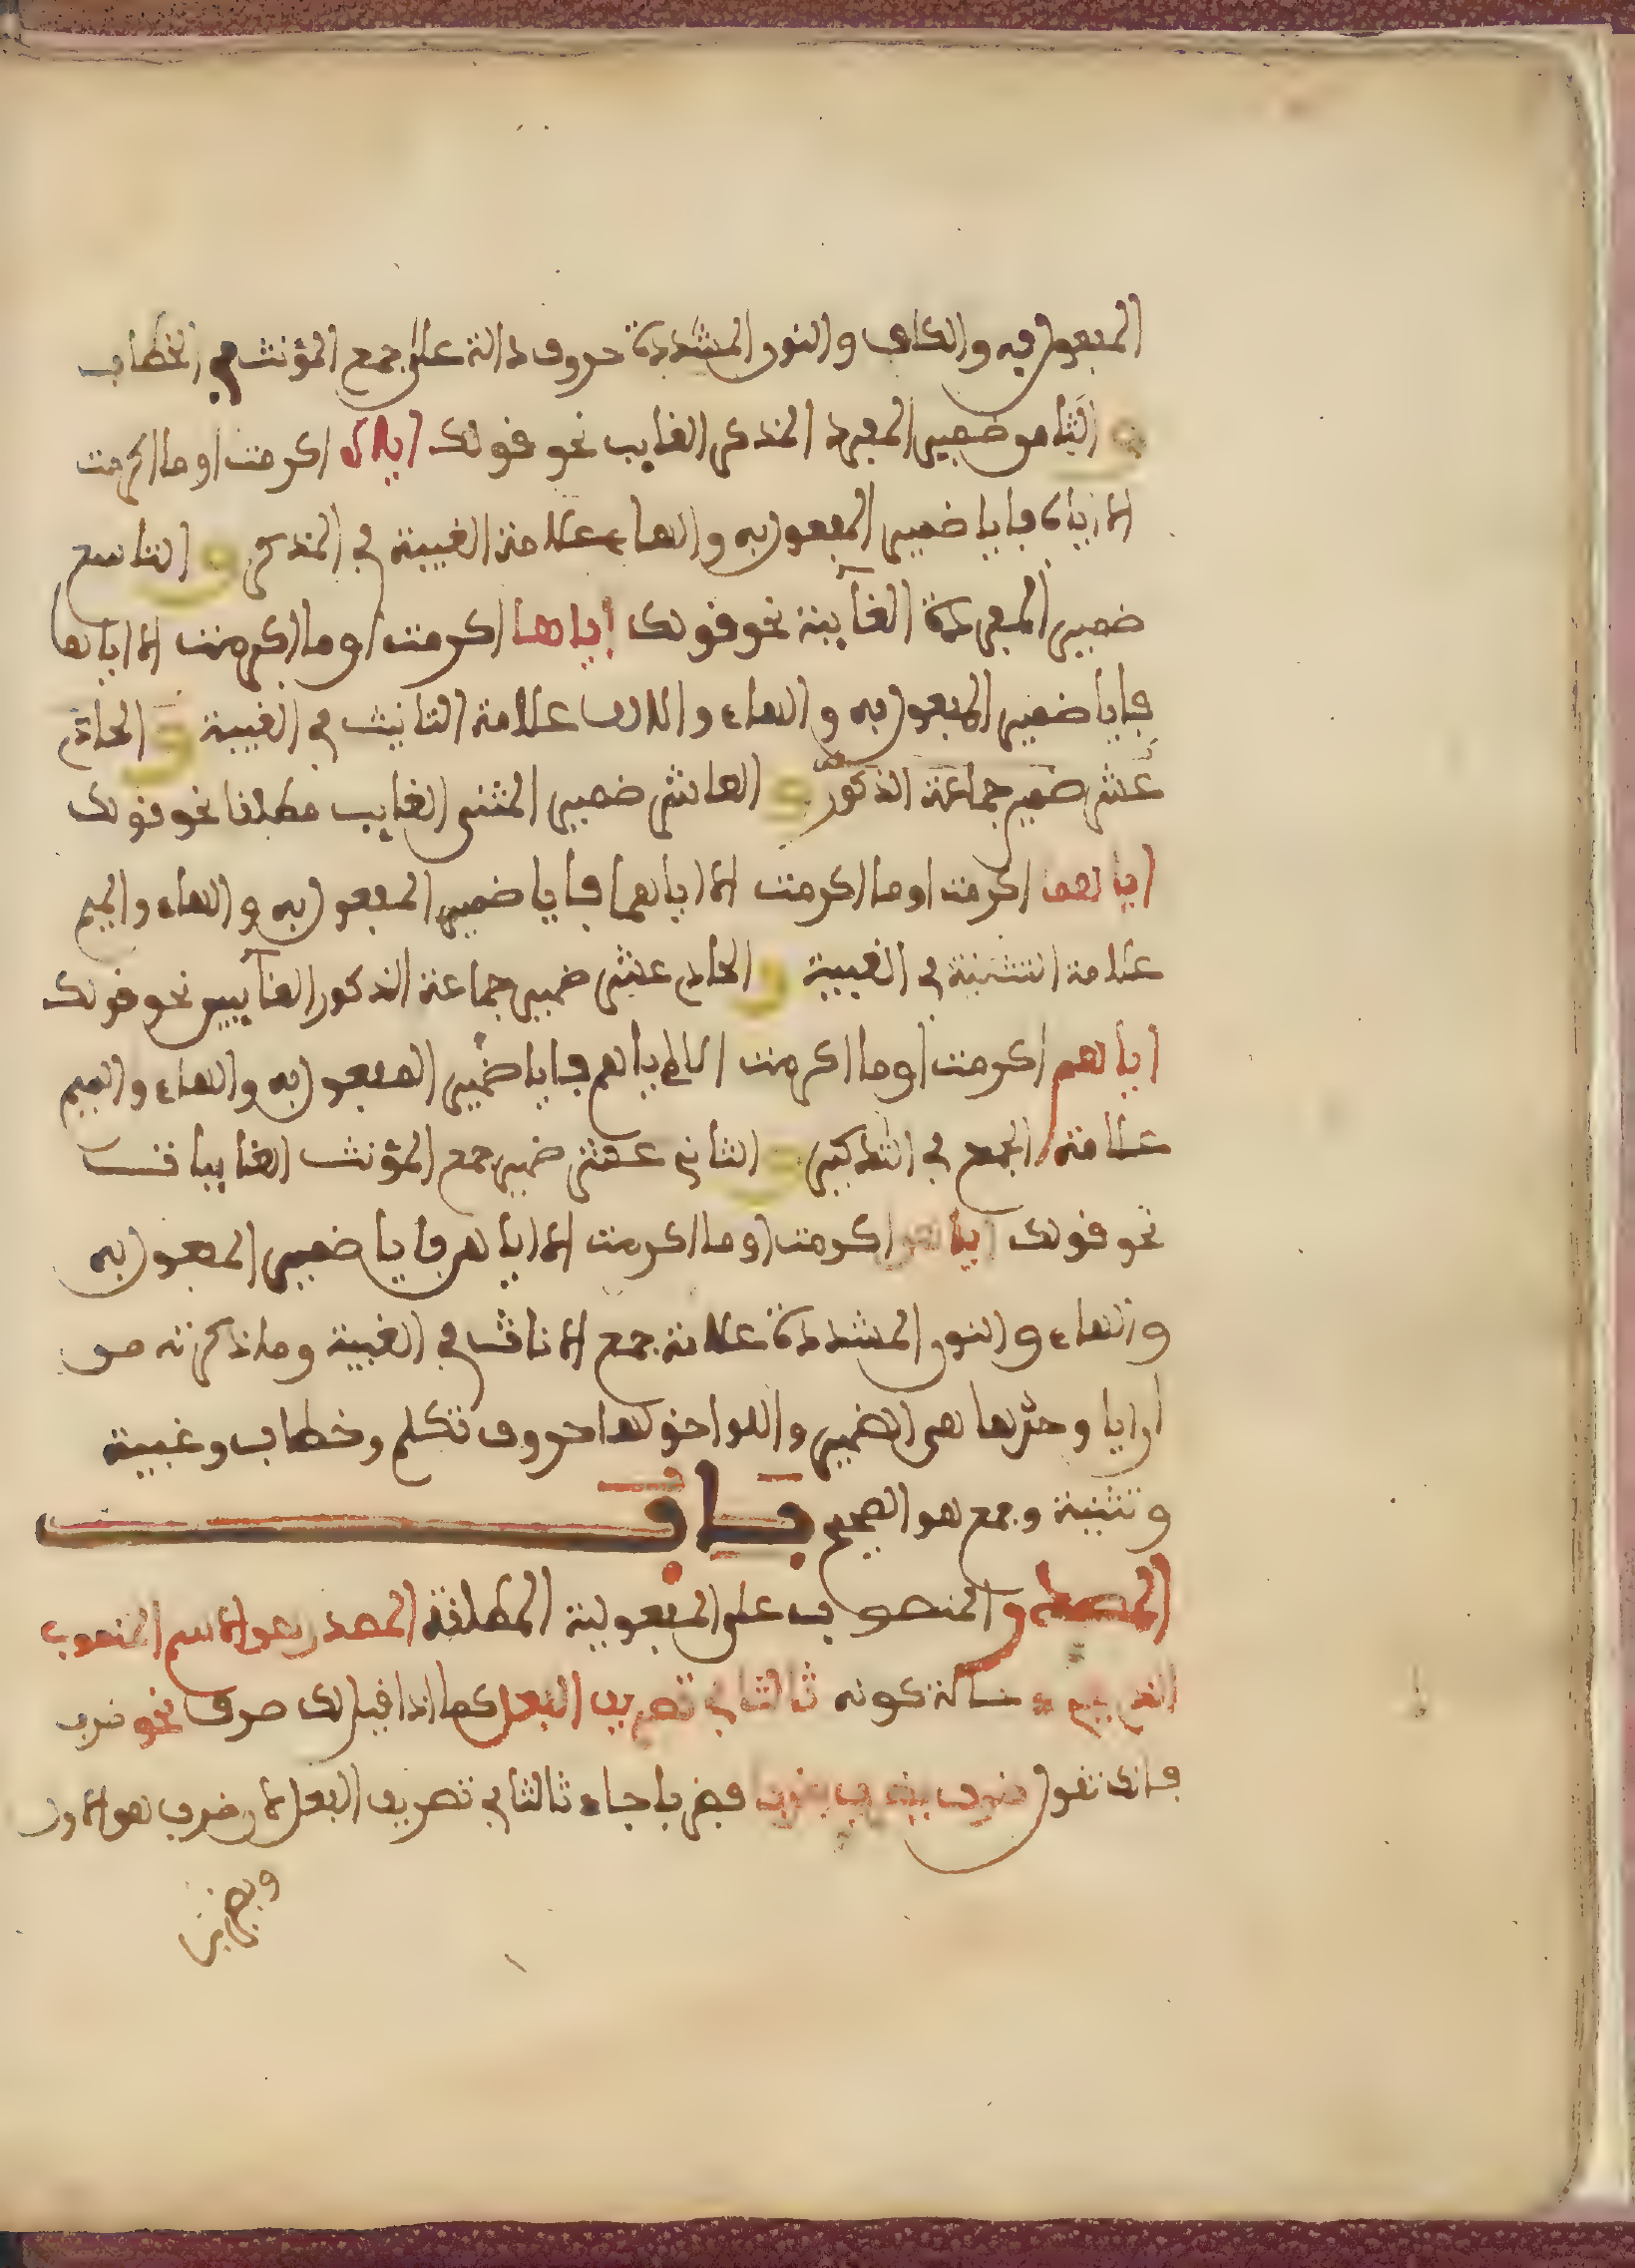 المفعول به والكاف والنون المشددة حروف دالة على جمع المؤنث في الخطاب
و الثامن ضمير المفرد المذكر الغايب نحو قولك اياه اكرمت او ما اكرمت
الا اياه فايا ضمير المفعول به والهاء علامة الغيبة في المذكر و التاسع
ضمير المفردة الغآيبة نحو قولك إياها اكرمت او ما اكرمت الا اياها
فايا ضمير المفعول به والهاء والالف علامة التانيث في الغيبة و الحادي
عشر ضمير جماعة الذكور و العاشر ضمير المثنى الغايب مطلقا نحو قولك
اياهما اكرمت او ما اكرمت الا اياهما فايا ضمير المفعول به والهاء والميم
علامة التثنية في الغيبة و الحادي عشر ضمير جماعة الذكور الغآيبين نحو قولك
اياهم اكرمت او ما اكرمت الا اياهم فايا ضمير المفعول به والهاء والميم
علامة الجمع في التذكير و الثاني عشر ضمير جمع المؤنث الغايبات
نحو قولك اياهن اكرمت او ما اكرمت الا اياهن فايا ضمير المفعول به
والهاء والنون المشددة علامة جمع الاناث في الغيبة وما ذكرته من
ان ايا وحدها هي الضمير واللواحق لها حروف تكلم وخطاب وغيبة
وتثنية وجمع هو الصحيح بــاب
المصدر المنصوب على المفعولية المطلقة المصدر هو الاسم المنصوب
الذي يجيء حالة كونه ثالثا في تصريف الفعل كما اذا قيل لك صرف نحو ضرب
فانك تقول ضرب يضرب ضربا فضربا جاء ثالثا في تصريف الفعل لان ضرب هو الاول
ويضرب